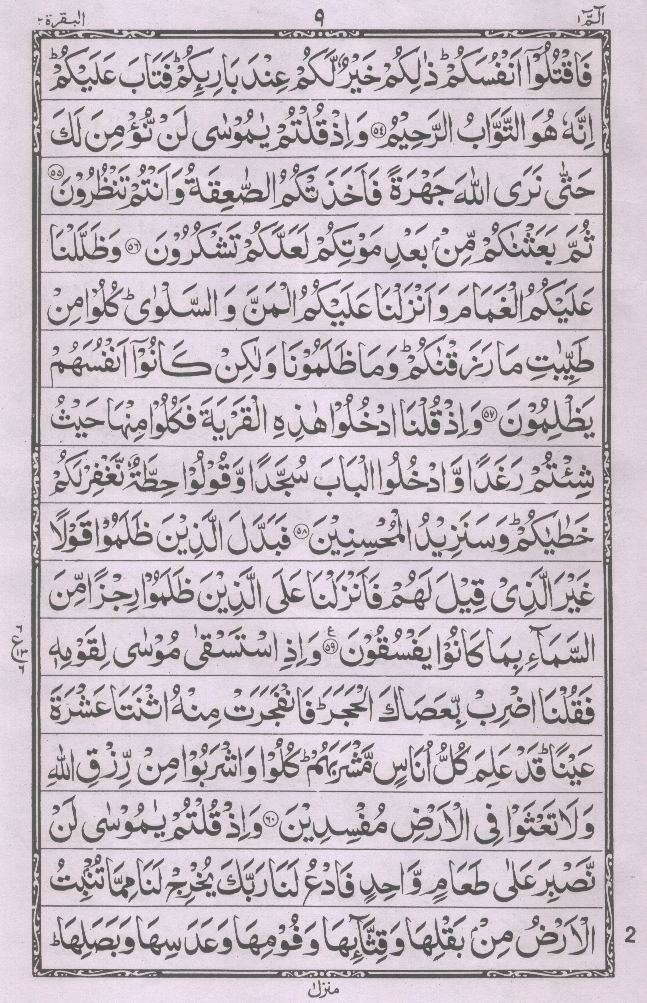 الٓمّٓ ١
٩
البقرة ٢
فَاقْتُلُوْۤا اَنْفُسَكُمْ ؕ ذٰلِكُمْ خَيْرٌ لَّكُمْ عِنْدَ بَارِئِكُمْ ؕ فَتَابَ عَلَيْكُمْ ؕ
اِنَّهٗ هُوَ التَّوَّابُ الرَّحِيْمُ ﴿۵۴﴾ وَاِذْ قُلْتُمْ يٰمُوْسٰى لَنْ نُّؤْمِنَ لَكَ
حَتّٰى نَرَى اللّٰهَ جَهْرَةً فَاَخَذَتْكُمُ الصّٰعِقَةُ وَاَنْتُمْ تَنْظُرُوْنَ ﴿۵۵﴾
ثُمَّ بَعَثْنٰكُمْ مِّنْۢ بَعْدِ مَوْتِكُمْ لَعَلَّكُمْ تَشْكُرُوْنَ ﴿۵۶﴾ وَظَلَّلْنَا
عَلَيْكُمُ الْغَمَامَ وَاَنْزَلْنَا عَلَيْكُمُ الْمَنَّ وَالسَّلْوٰى ؕ كُلُوْا مِنْ
طَيِّبٰتِ مَا رَزَقْنٰكُمْ ؕ وَمَا ظَلَمُوْنَا وَلٰكِنْ كَانُوْۤا اَنْفُسَهُمْ
يَظْلِمُوْنَ ﴿۵۷﴾ وَاِذْ قُلْنَا ادْخُلُوْا هٰذِهِ الْقَرْيَةَ فَكُلُوْا مِنْهَا حَيْثُ
شِئْتُمْ رَغَدًا وَّادْخُلُوا الْبَابَ سُجَّدًا وَّقُوْلُوْا حِطَّةٌ نَّغْفِرْ لَكُمْ
خَطٰيٰكُمْ ؕ وَسَنَزِيْدُ الْمُحْسِنِيْنَ ﴿۵۸﴾ فَبَدَّلَ الَّذِيْنَ ظَلَمُوْا قَوْلًا
غَيْرَ الَّذِىْ قِيْلَ لَهُمْ فَاَنْزَلْنَا عَلَى الَّذِيْنَ ظَلَمُوْا رِجْزًا مِّنَ
السَّمَآءِ بِمَا كَانُوْا يَفْسُقُوْنَ ﴿۵۹﴾ ع وَاِذِ اسْتَسْقٰى مُوْسٰى لِقَوْمِهٖ
فَقُلْنَا اضْرِبْ بِّعَصَاكَ الْحَجَرَ ؕ فَانْفَجَرَتْ مِنْهُ اثْنَتَا عَشْرَةَ
عَيْنًا ؕ قَدْ عَلِمَ كُلُّ اُنَاسٍ مَّشْرَبَهُمْ ؕ كُلُوْا وَاشْرَبُوْا مِنْ رِّزْقِ اللّٰهِ
وَلَا تَعْثَوْا فِى الْاَرْضِ مُفْسِدِيْنَ ﴿۶۰﴾ وَاِذْ قُلْتُمْ يٰمُوْسٰى لَنْ
نَّصْبِرَ عَلٰى طَعَامٍ وَّاحِدٍ فَادْعُ لَنَا رَبَّكَ يُخْرِجْ لَنَا مِمَّا تُنْۢبِتُ
الْاَرْضُ مِنْۢ بَقْلِهَا وَقِثَّآئِهَا وَفُوْمِهَا وَعَدَسِهَا وَبَصَلِهَا ؕ
2
منزل ١